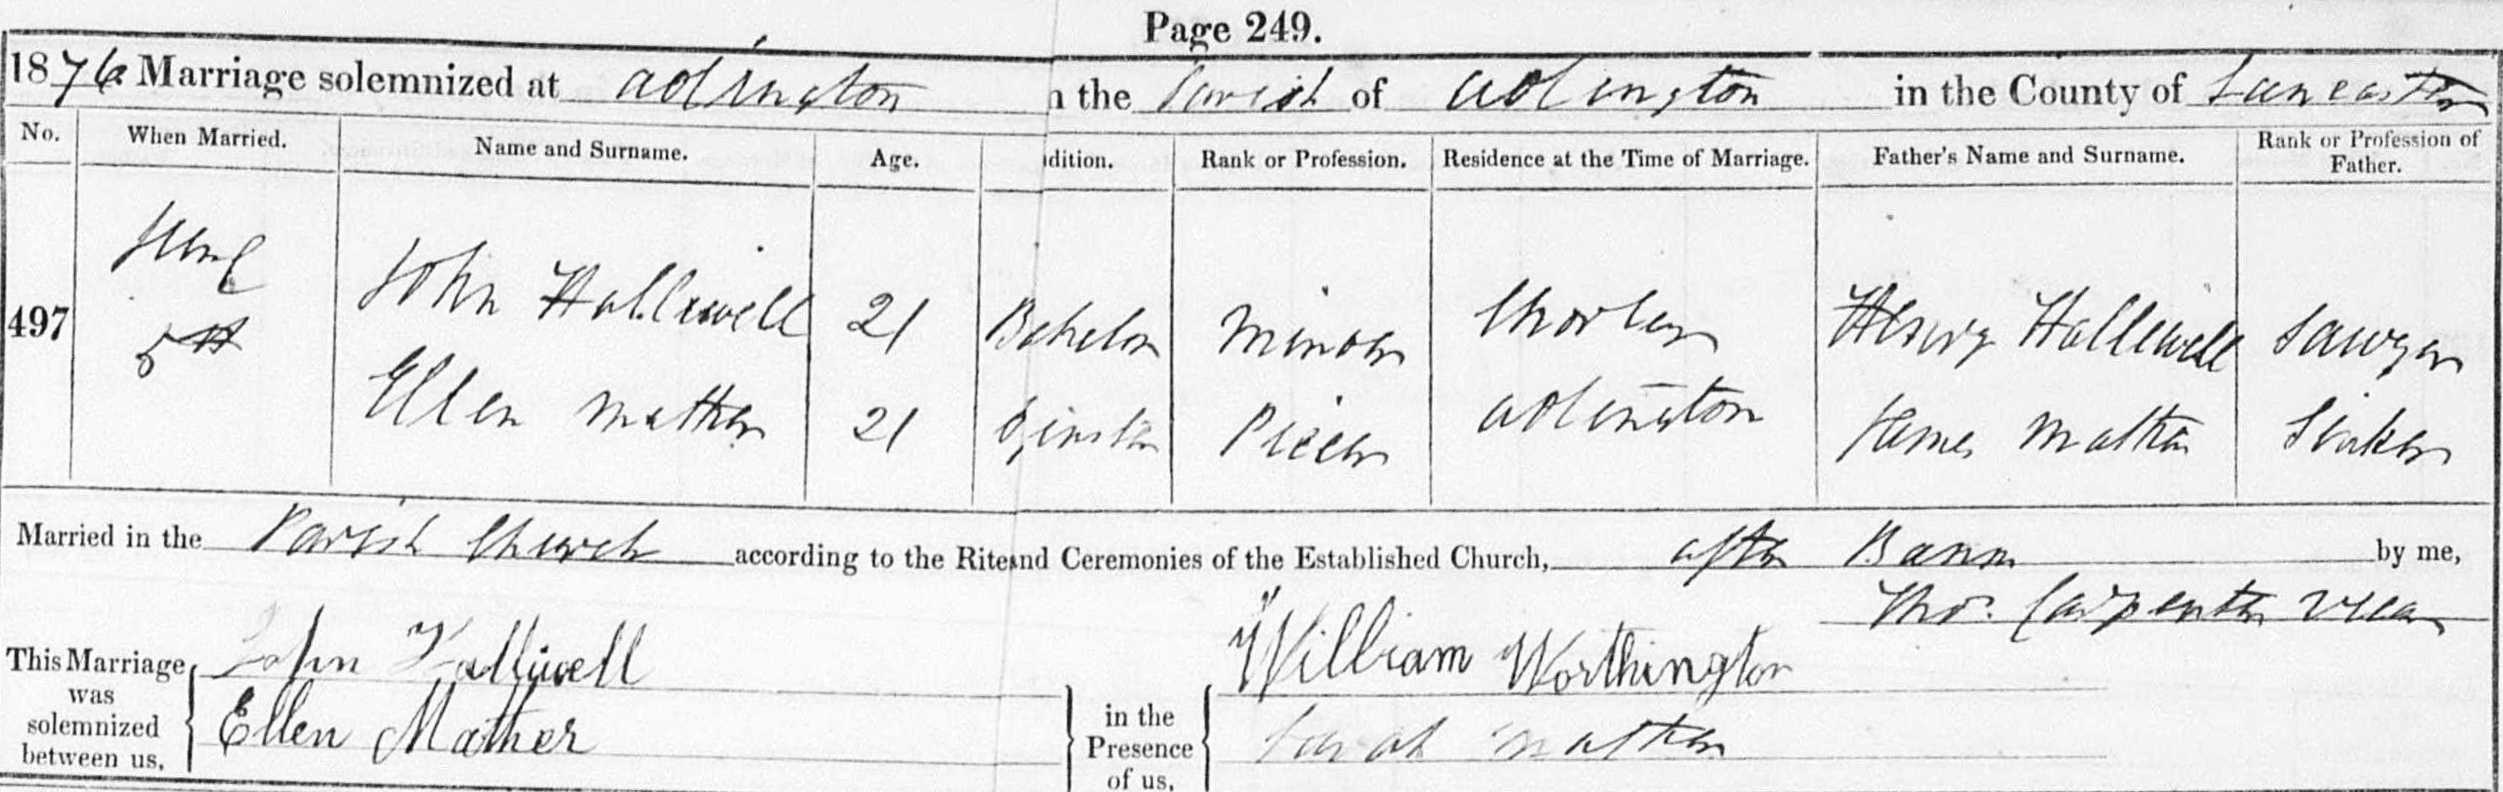 Page 249.
1876 Marriage solemnized at Adlington n the Parish of Adlington in the County of Lancaster
No. When Married. Name and Surname. Age. dition. Rank or Profession. Residence at the Time of Marriage. Father's Name and Surname. Rank or Profession of Father.
497 June 5th John Halliwell 21 Bachelor Minor Chorley Henry Halliwell Sawyer
Ellen Mather 21 Spinster Piecer Adlington James Mather Sinker
Married in the Parish Church according to the Rite and Ceremonies of the Established Church, after Banns by me,
Thos. Carpenter Vicar
This Marriage was solemnized between us,
John Halliwell
Ellen Mather
in the Presence of us,
William Worthington
Sarah Mather